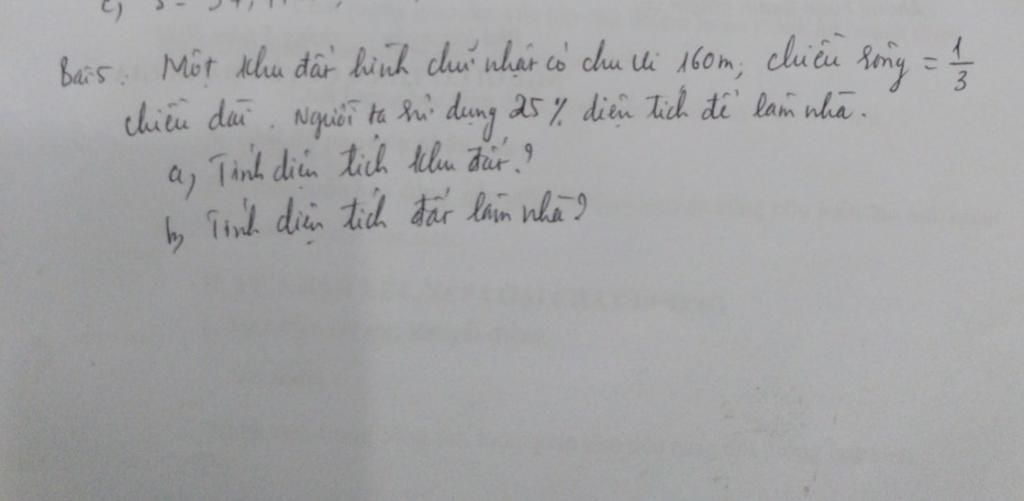 Bài 5: Một khu đất hình chữ nhật có chu vi 160m, chiều rộng = 1/3
chiều dài. Người ta sử dụng 25% diện tích để làm nhà.
a, Tính diện tích khu đất?
b, Tính diện tích đất làm nhà?